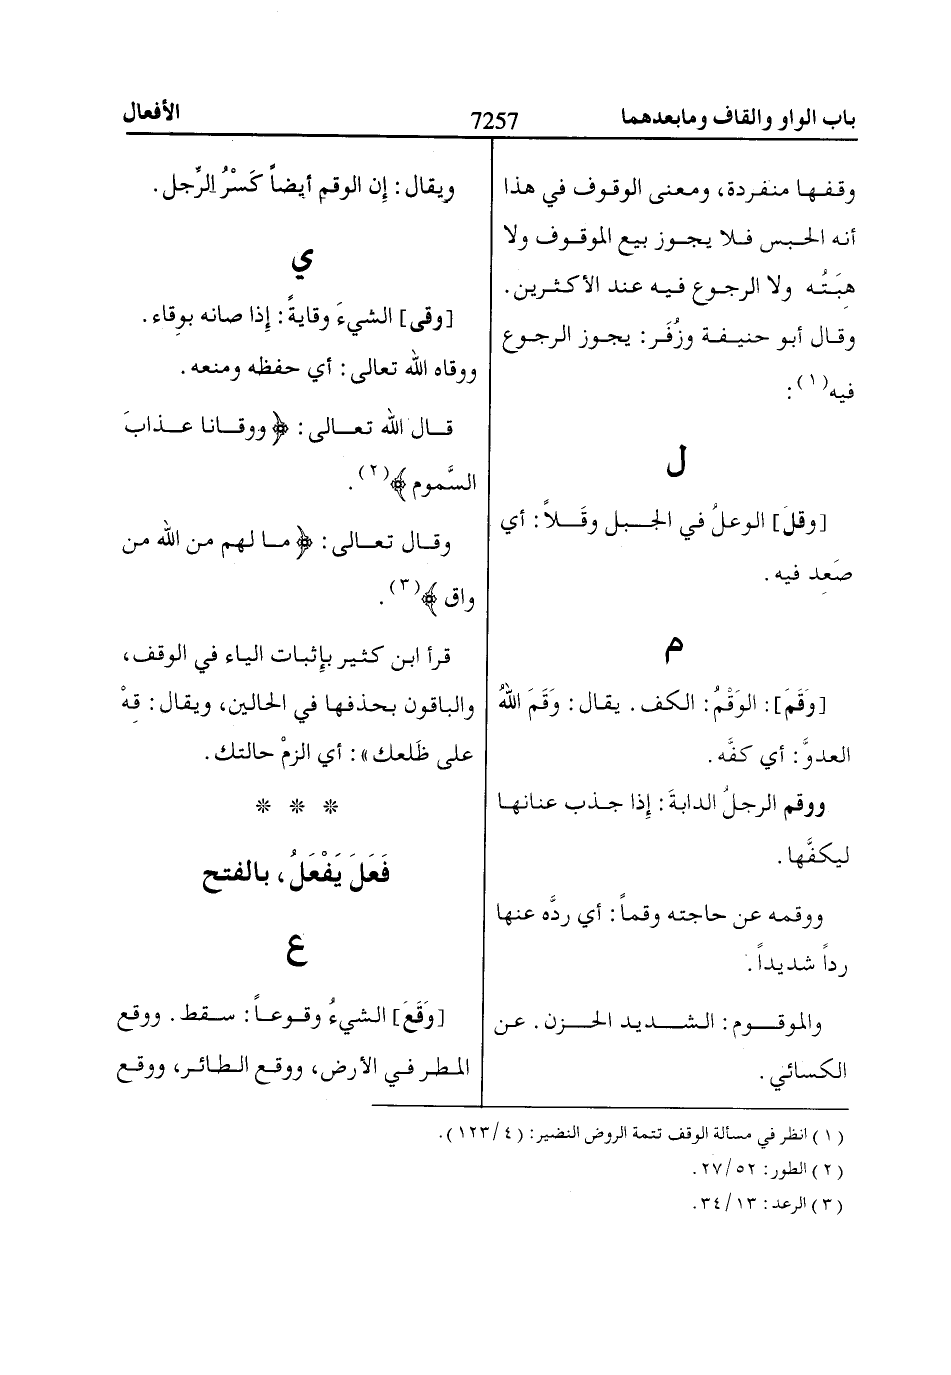 باب الواو والقاف ومابعدهما
7257
الأفعال
وقفها منفردة، ومعنى الوقوف في هذا
أنه الحبس فلا يجوز بيع الموقوف ولا
هِبَتُه ولا الرجوع فيه عند الأكثرين.
وقال أبو حنيفة وزُفَر: يجوز الرجوع
فيه(١):
ل
[وقلَ] الوعلُ في الجبل وقَلاً: أي
صَعِد فيه.
م
[وَقَمَ]: الوَقْمُ: الكف. يقال: وَقَمَ اللّٰهُ
العدوَّ: أي كفَّه.
ووقم الرجلُ الدابةَ: إذا جذب عنانها
ليكفَّها.
ووقمه عن حاجته وقماً: أي ردَّه عنها
رداً شديداً.
والموقوم: الشديد الحزن. عن
الكسائي.
ويقال: إن الوقم أيضاً كَسْرُ الرِّجل.
ي
[وقى] الشيءَ وقايةً: إذا صانه بوِقاء.
ووقاه اللّٰه تعالى: أي حفظه ومنعه.
قال اللّٰه تعالى: ﴿ووقانا عذابَ
السَّموم﴾(٢).
وقال تعالى: ﴿ما لهم من اللّٰه من
واق﴾(٣).
قرأ ابن كثير بإثبات الياء في الوقف،
والباقون بحذفها في الحالين، ويقال: قِهْ
على ظَلعك»: أي الزمْ حالتك.
* * *
فَعَلَ يَفْعَلُ، بالفتح
ع
[وَقَعَ] الشيءُ وقوعاً: سقط. ووقع
المطر في الأرض، ووقع الطائر، ووقع
(١) انظر في مسألة الوقف تتمة الروض النضير: (٤/١٢٣).
(٢) الطور: ٥٢/٢٧.
(٣) الرعد: ١٣/٣٤.